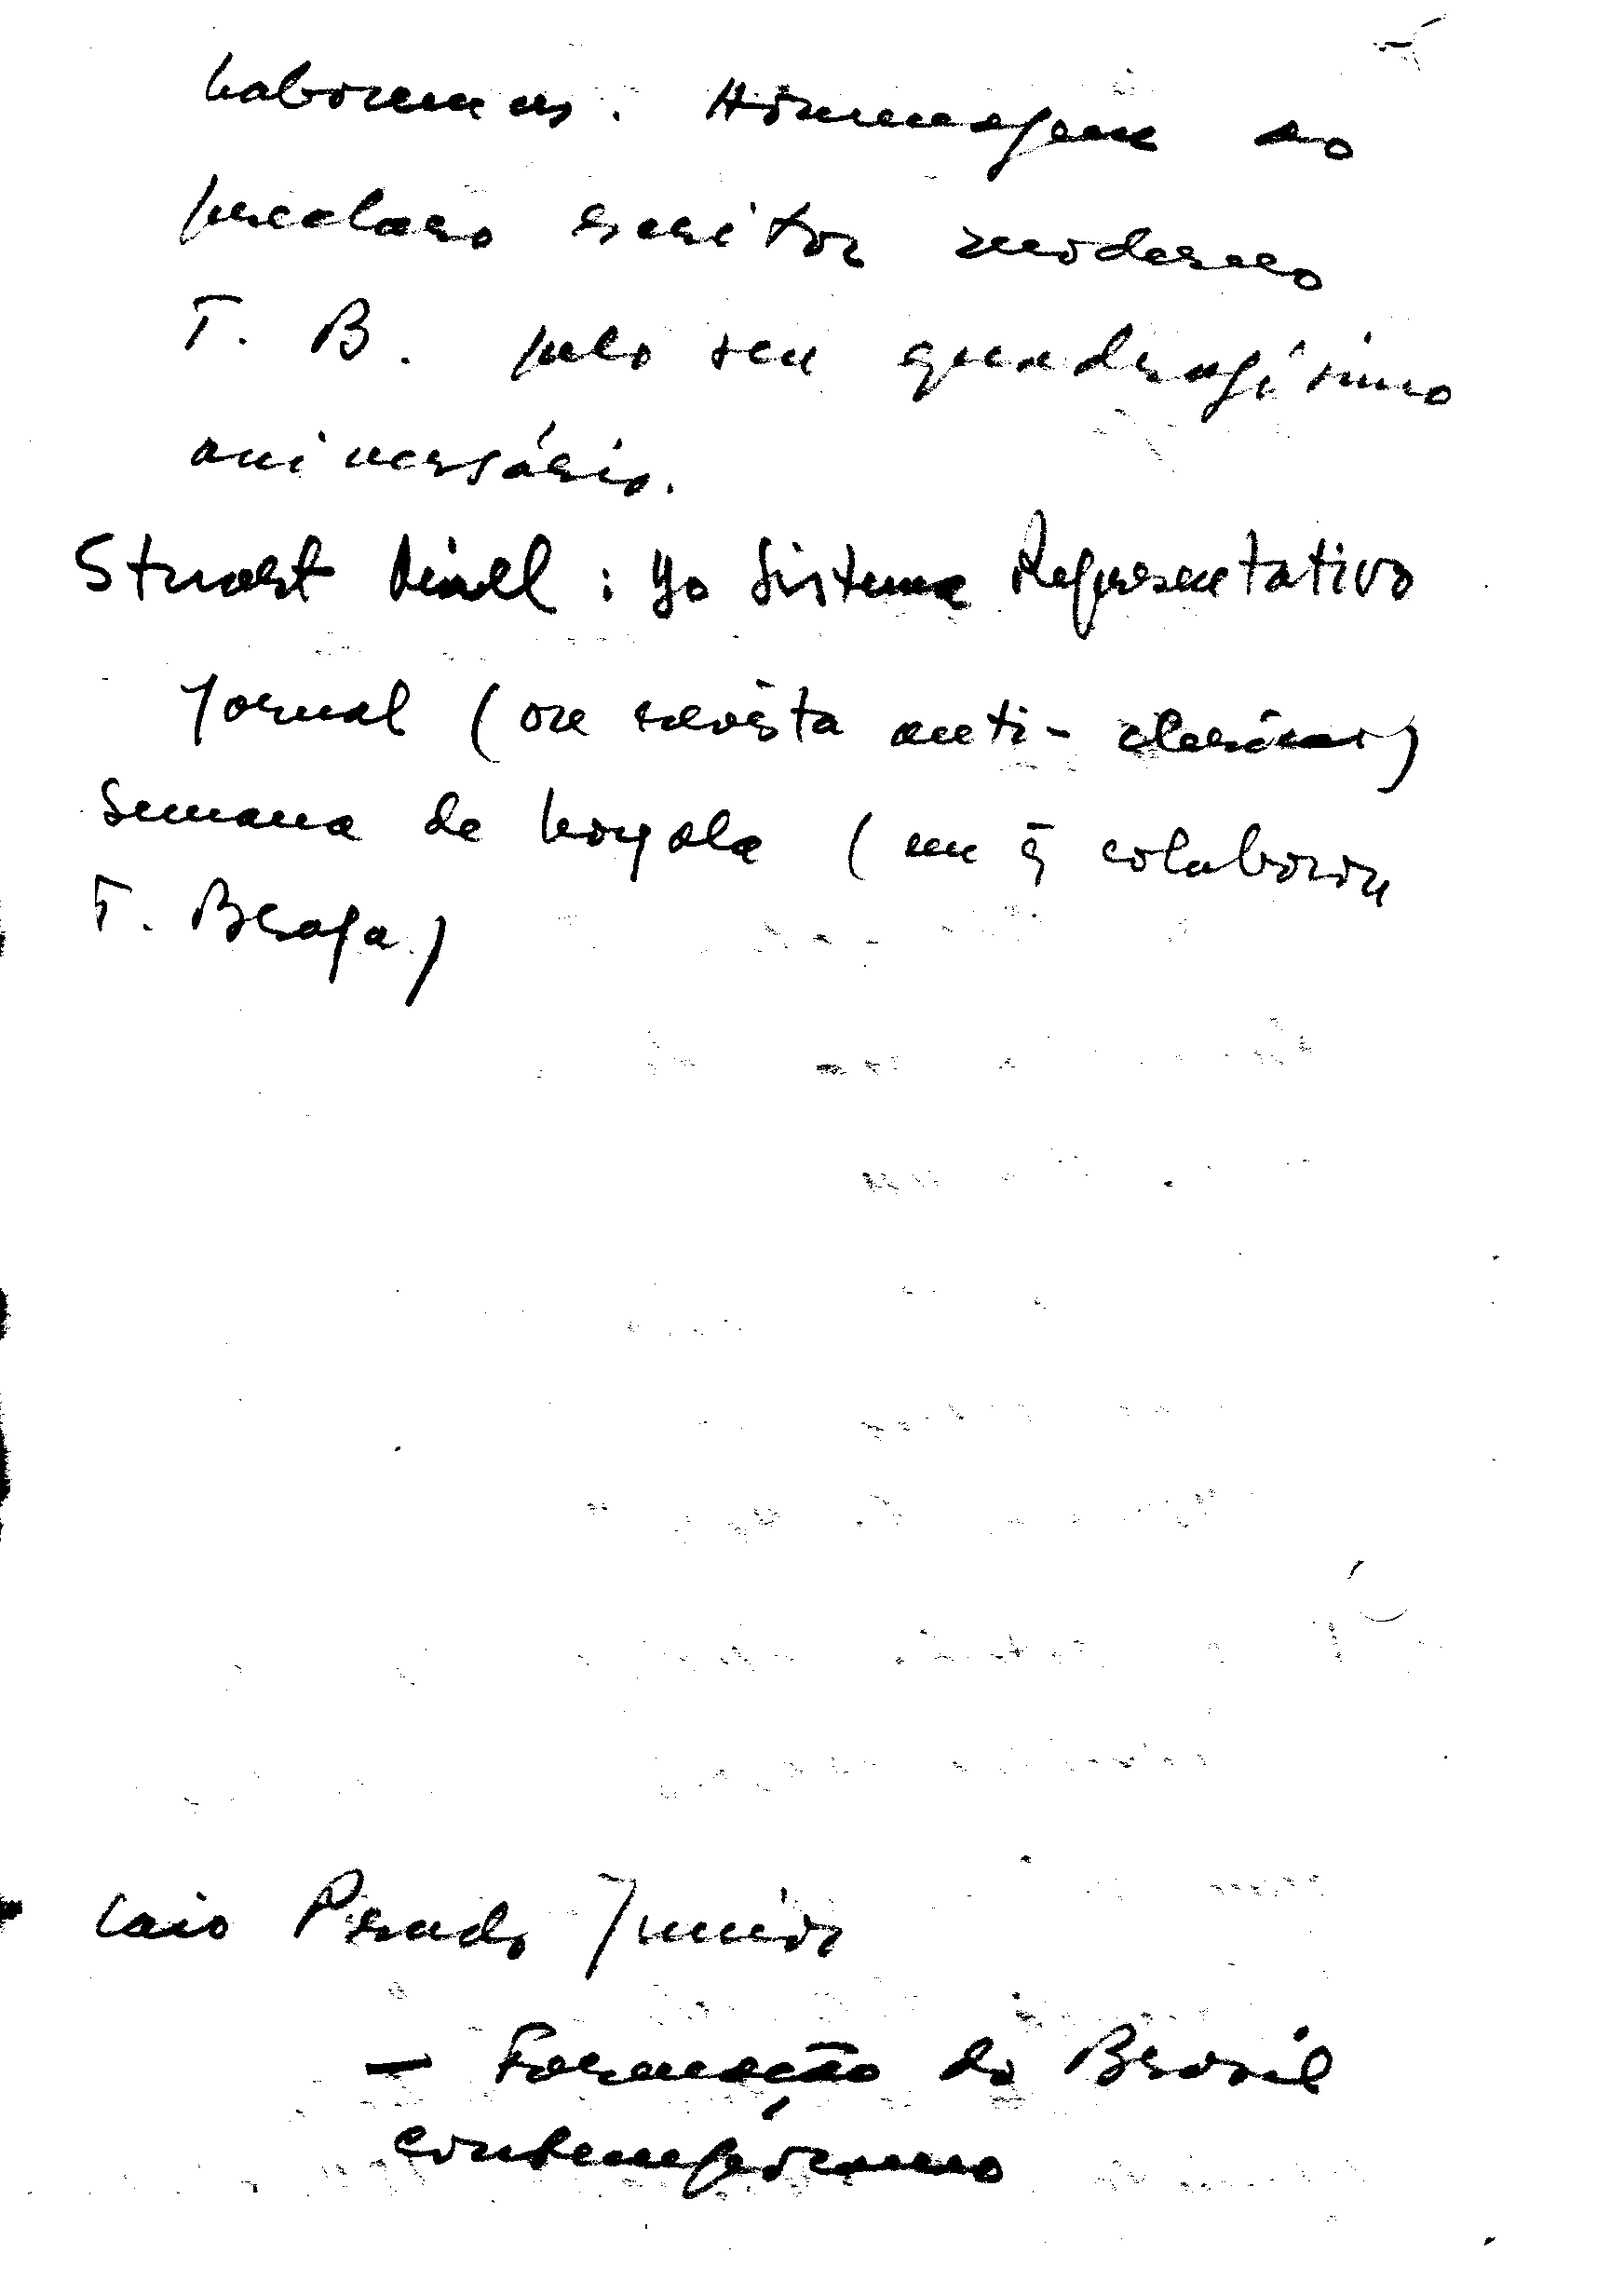 Laboremus. Homenagem ao
preclaro escritor moderno
T. B. pelo seu quadragésimo
aniversário.
Stuart Mill: Go Sistema Representativo
Jornal (ou revista anti-clerical)
Semana de Loyola (em q̃ colaborou
T. Braga)
Caio Prado Júnior
— Formação do Brasil
contemporâneo